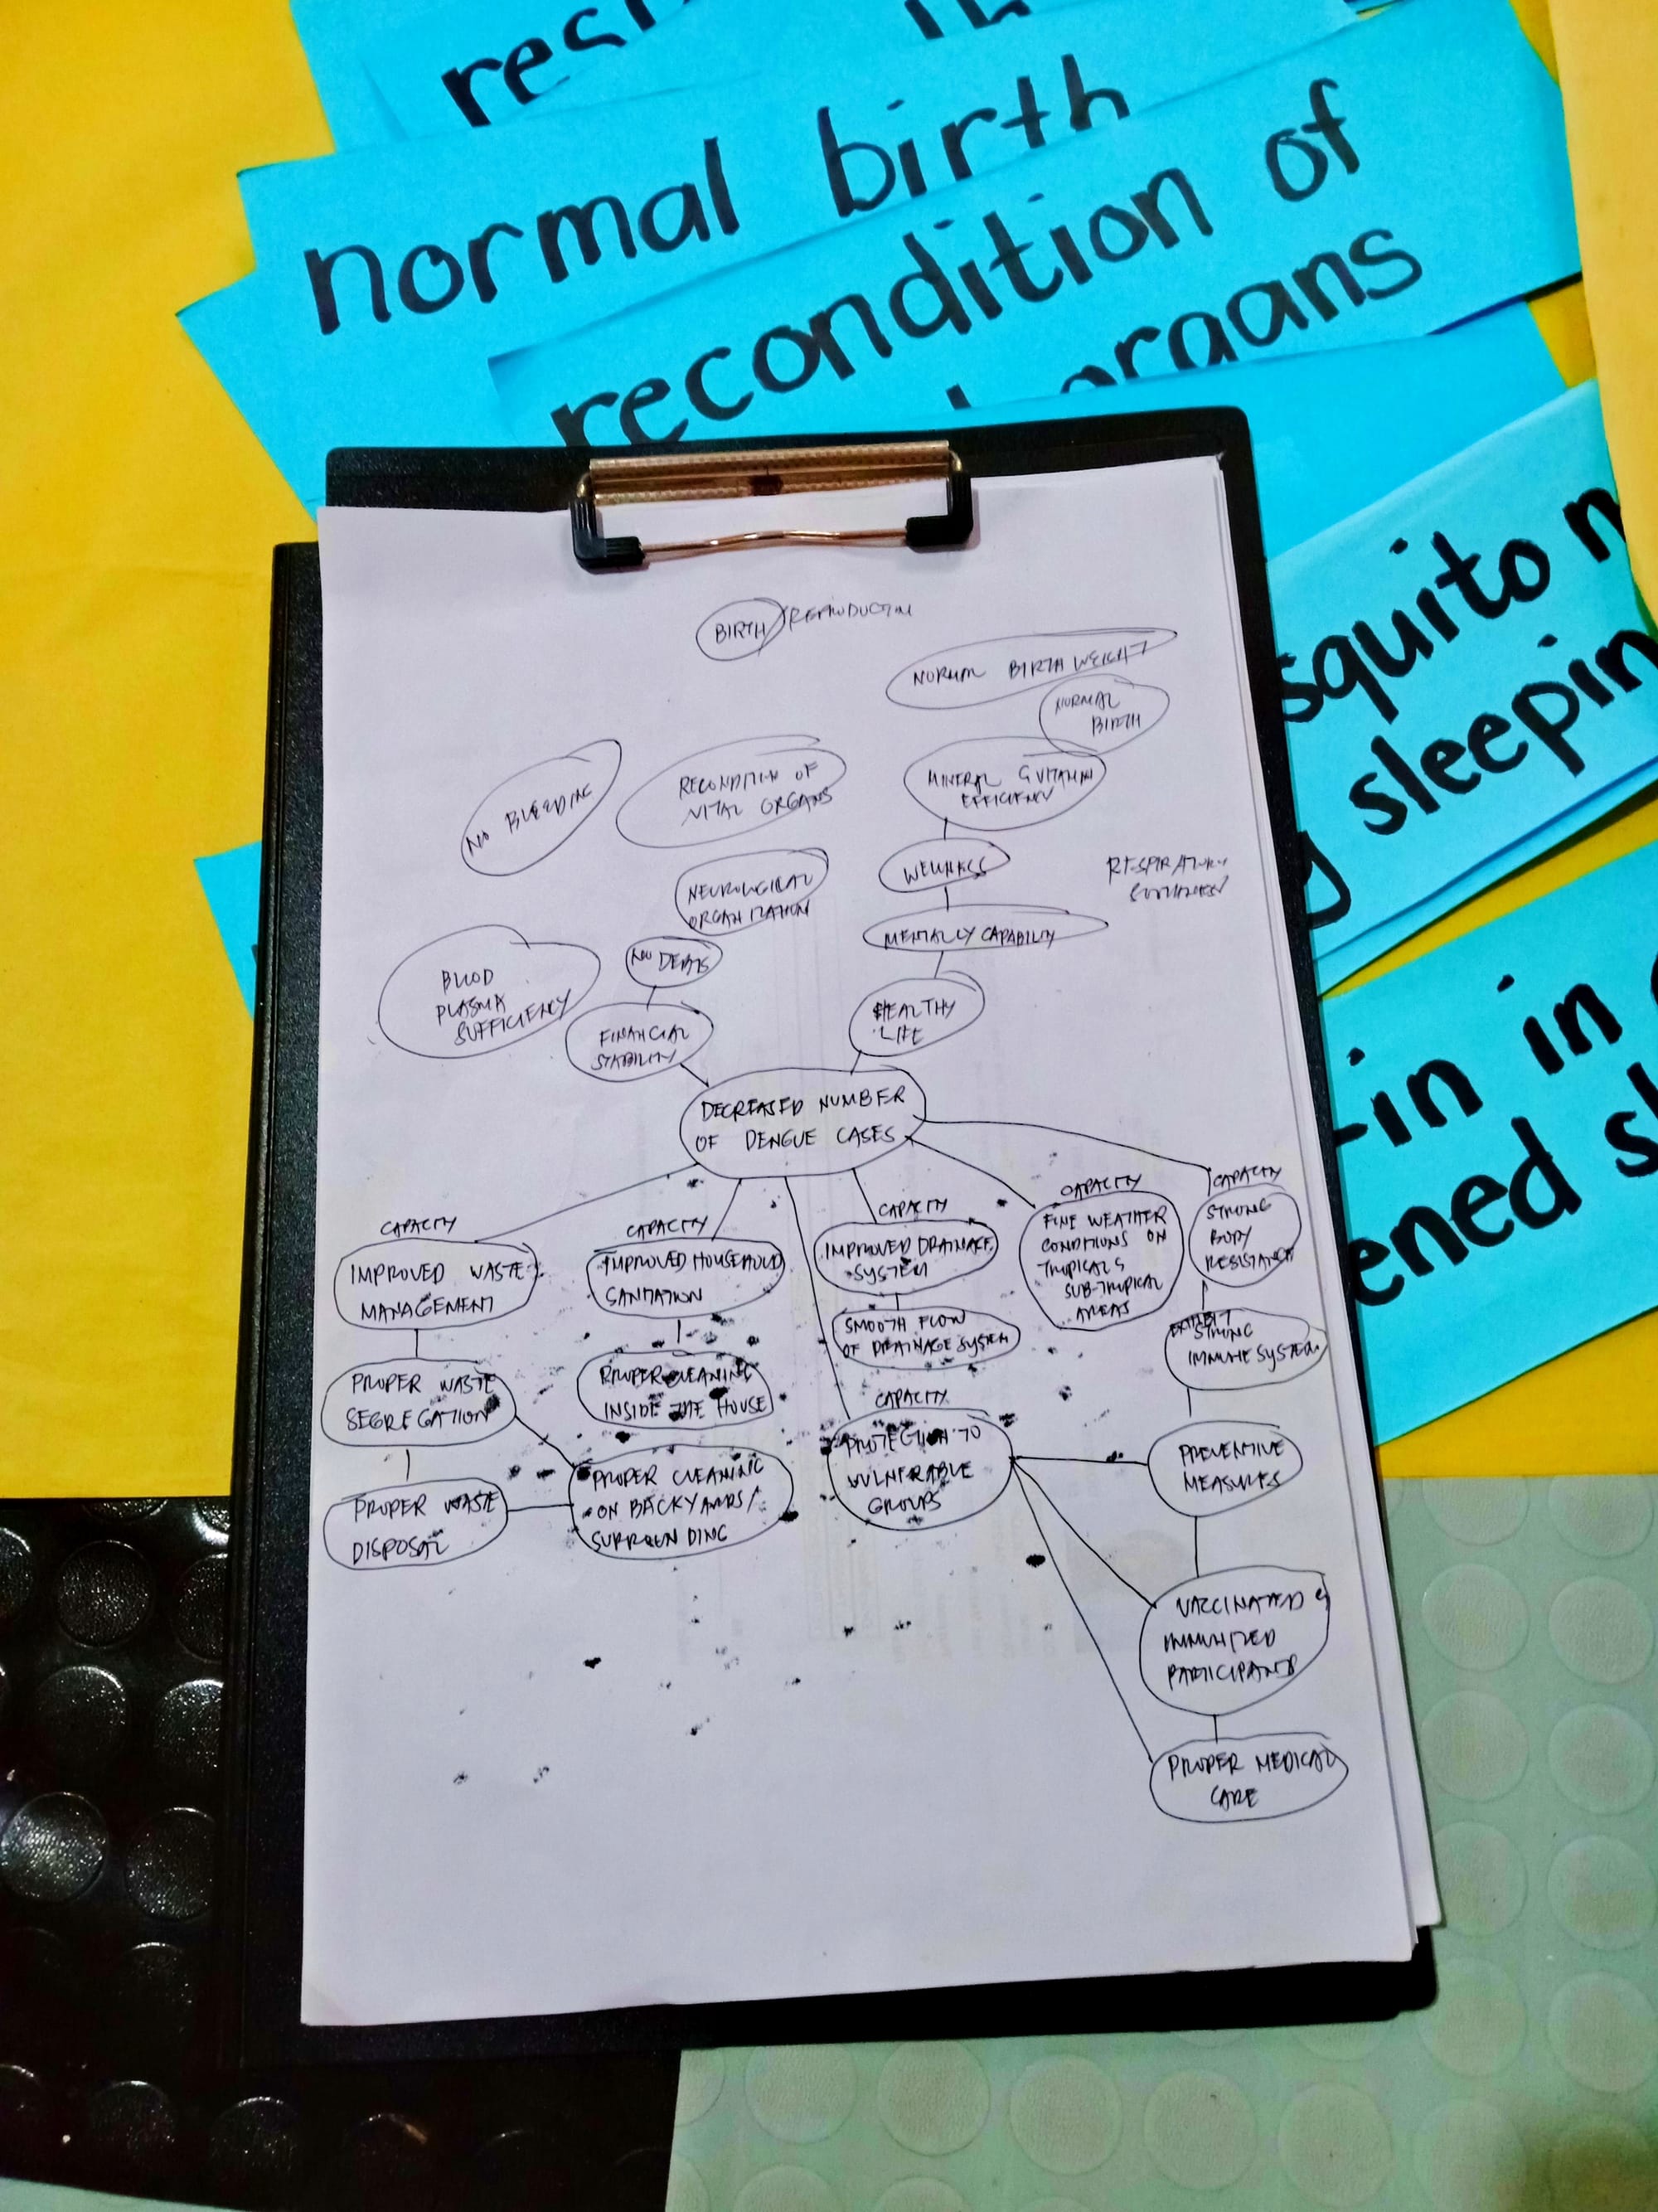 normal birth
recondition of
organs
squito n
sleepin
-in in
ened sl
BIRTH
NORMAL BIRTH WEIGHT
NORMAL
BIRTH
NO BLEEDING
RECONDITION OF
VITAL ORGANS
MINERAL & VITAMIN
EFFICIENCY
NEUROLOGICAL
ORGANIZATION
WELLNESS
RESPIRATORY
MENTALLY CAPABILITY
NO DEBTS
BLOOD
PLASMA
SUFFICIENCY
FINANCIAL
STABILITY
HEALTHY
LIFE
DECREASED NUMBER
OF DENGUE CASES
CAPACITY
IMPROVED WASTE
MANAGEMENT
PROPER WASTE
SEGREGATION
PROPER WASTE
DISPOSAL
CAPACITY
IMPROVED HOUSEHOLD
SANITATION
PROPER CLEANING
INSIDE THE HOUSE
PROPER CLEANING
ON BACKYARDS/
SURROUNDING
CAPACITY
IMPROVED DRAINAGE
SYSTEM
SMOOTH FLOW
OF DRAINAGE SYSTEM
CAPACITY
PROTECTION TO
VULNERABLE
GROUPS
CAPACITY
FINE WEATHER
CONDITIONS ON
TROPICAL &
SUB-TROPICAL
AREAS
CAPACITY
STRONG
BODY
RESISTANCE
EXHIBIT
STRONG
IMMUNE SYSTEM
PREVENTIVE
MEASURES
VACCINATED &
IMMUNIZED
PARTICIPANTS
PROPER MEDICAL
CARE